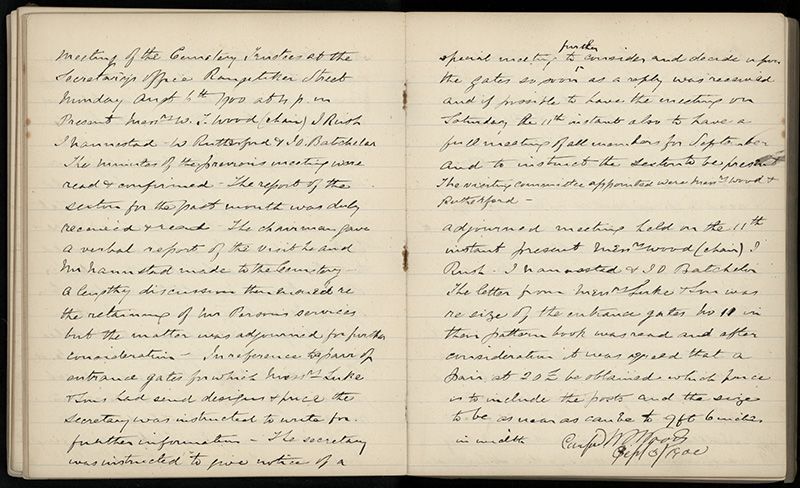 Meeting of the Cemetery Trustees at the
Secretary's office Rangitikei Street
Monday August 6th 1900 at 4 p.m
Present Messrs W. T. Wood (chair) J Rush
J Wannested - W Rutherford & J O Batchelar
The minutes of the previous meeting were
read & confirmed - The report of the
sexton for the past month was duly
received & read - The chairman gave
a verbal report of the visit he and
Mr Wannested made to the Cemetery
A lengthy discussion then ensued re
the retaining of Mr services
but the matter was adjourned for further
consideration - In reference to pair of
entrance gates for which Messrs Luke
& Sons had send designs & price the
secretary was instructed to write for
further information - The secretary
was instructed to give notice of a
special meeting further to consider and decide upon
the gates so soon as a reply was received
and if possible to have the meeting on
Saturday the 11th instant also to have a
full meeting of all members for September
and to instruct the sexton to be present
The visiting committee appointed were Messrs Wood &
Rutherford -
adjourned meeting held on the 11th
instant present Messrs Wood (chair) J
Rush - J Wannested & J O Batchelar
The letter from Messrs Luke & Sons was
re size of the entrance gates No 10 in
their pattern book was read and after
consideration it was agreed that a
Pair at 20£ be obtained which price
is to include the posts and the size
to be as near as can be to 9ft 6 inches
in width
W T Wood
Sept 3/1900